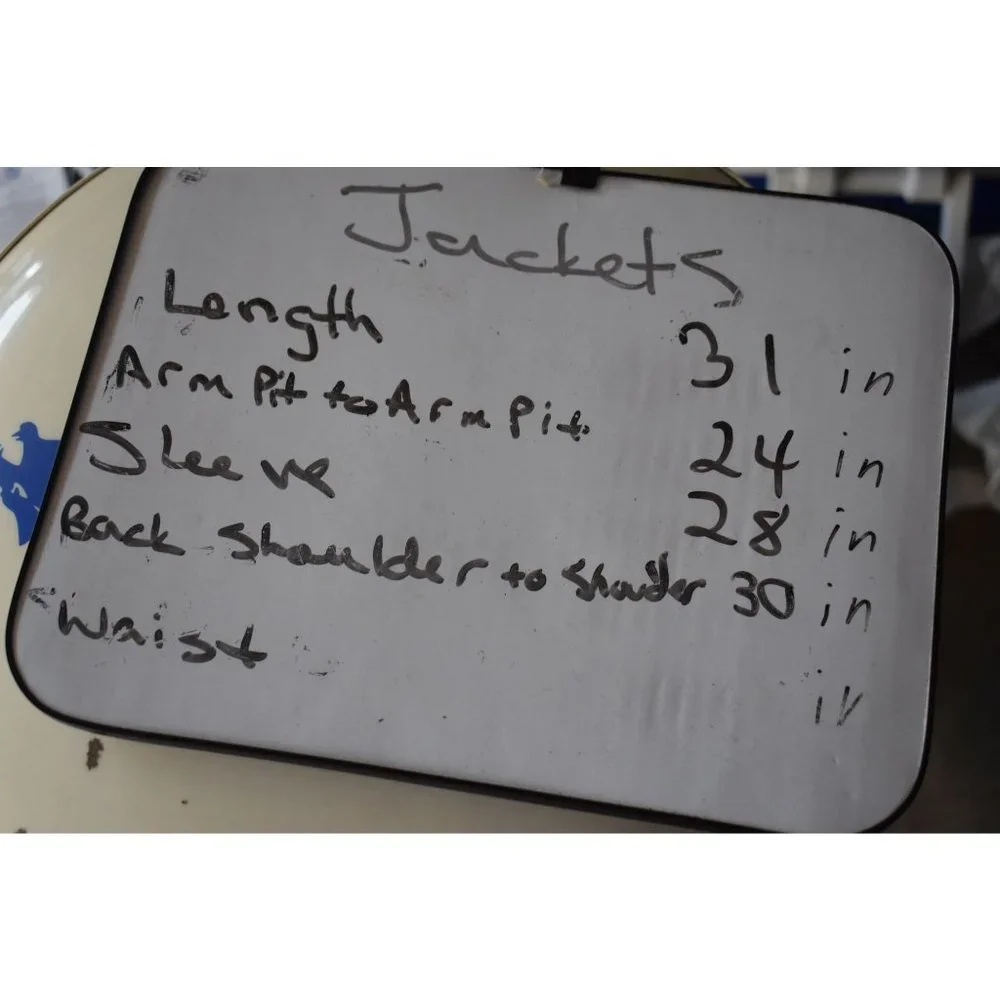 Jackets
Length 31 in
Arm Pit to Arm Pit 24 in
Sleeve 28 in
Back Shoulder to Shoulder 30 in
Waist in